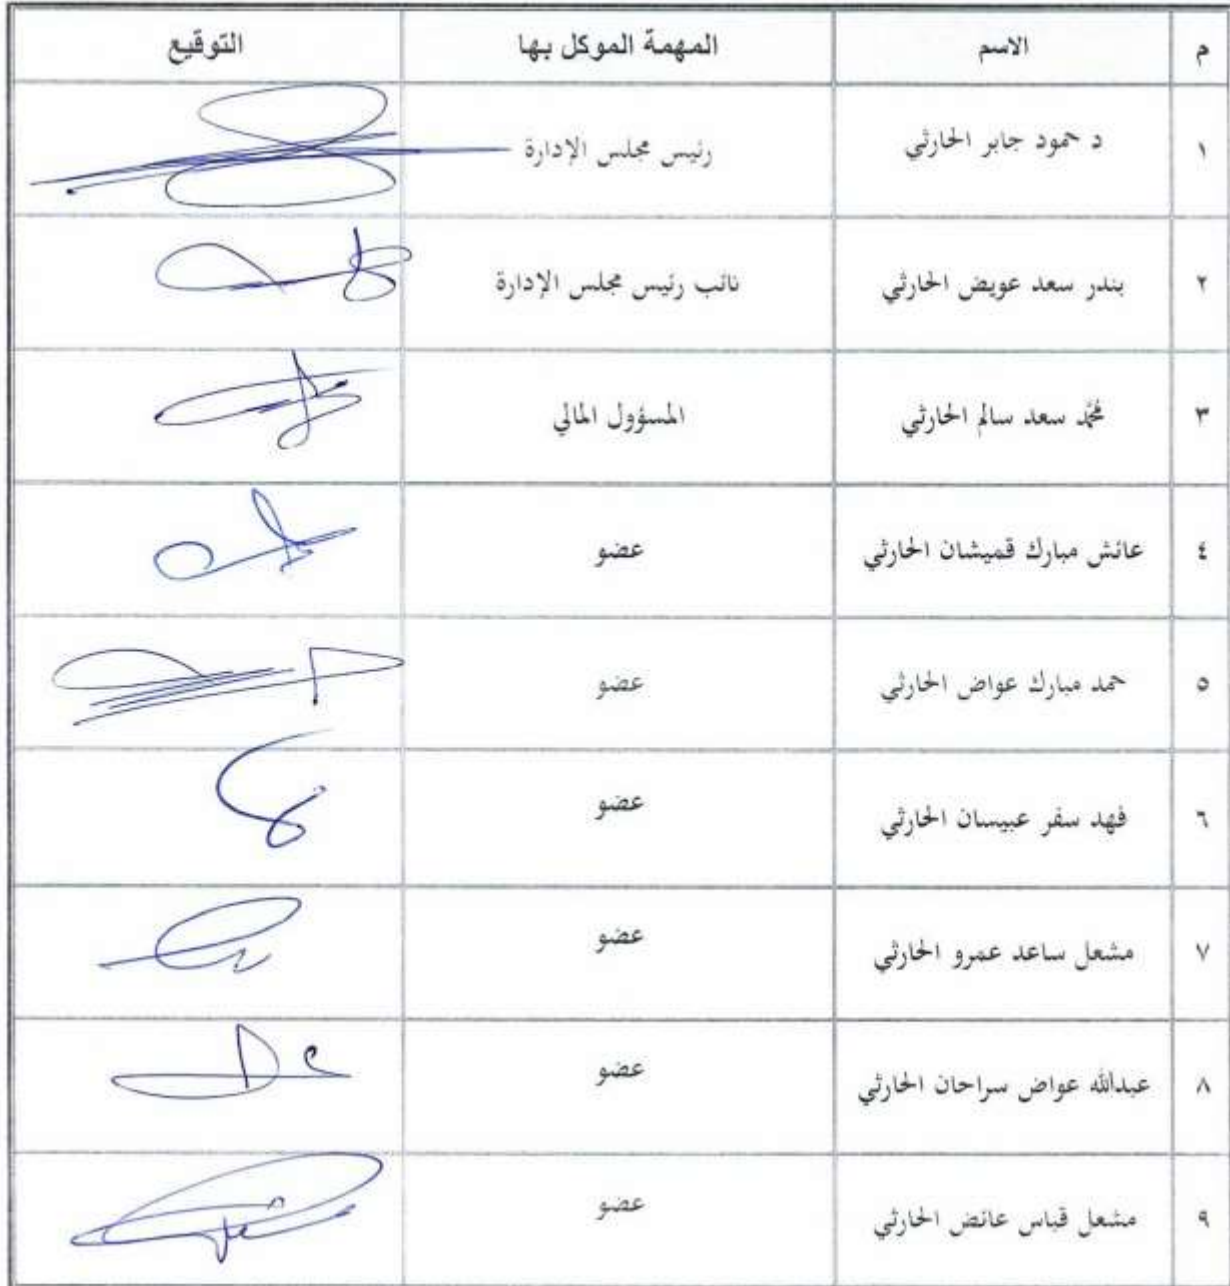 م الاسم المهمة الموكل بها التوقيع
١ د حمود جابر الحارثي رئيس مجلس الإدارة
٢ بندر سعد عويض الحارثي نائب رئيس مجلس الإدارة
٣ محمد سعد سالم الحارثي المسؤول المالي
٤ عائش مبارك قميشان الحارثي عضو
٥ حمد مبارك عواض الحارثي عضو
٦ فهد سفر عبيسان الحارثي عضو
٧ مشعل ساعد عمرو الحارثي عضو
٨ عبدالله عواض سراحان الحارثي عضو
٩ مشعل قباس عائض الحارثي عضو